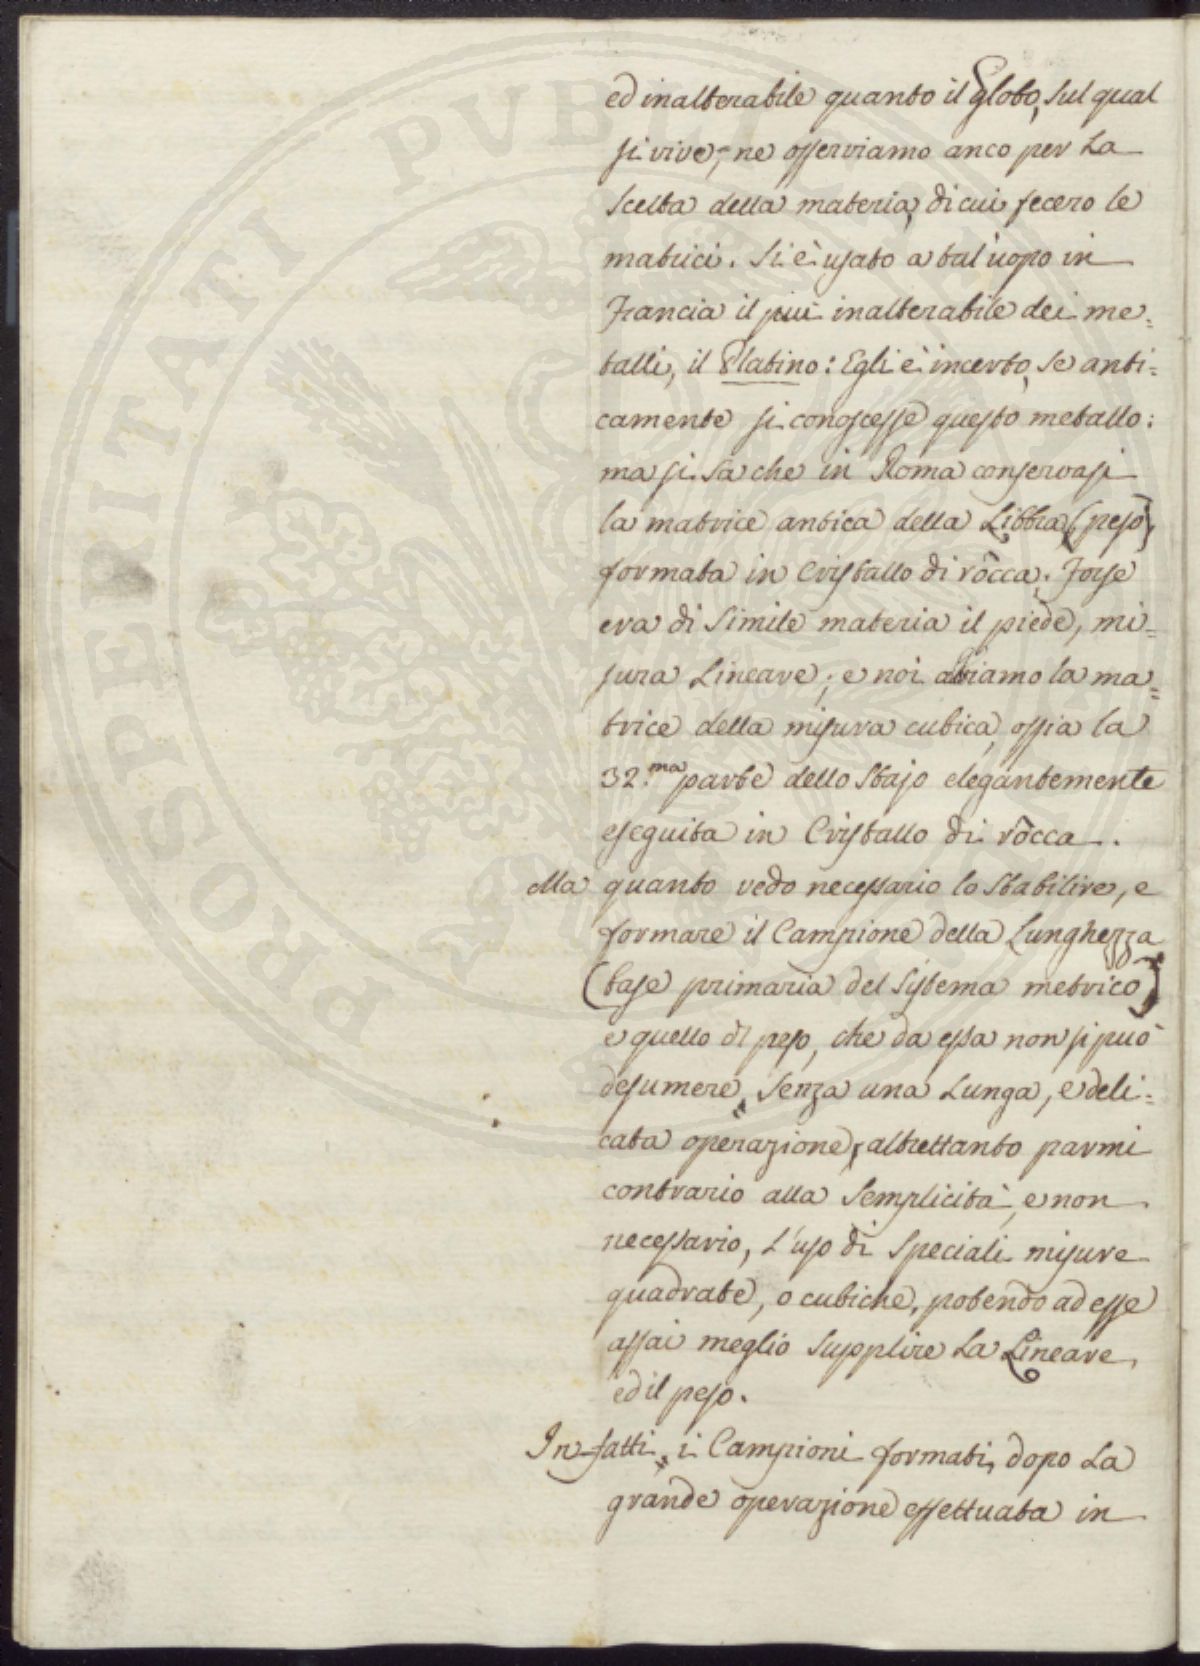 ed inalterabile quanto il Globo, sul qual
si vive, ne osserviamo anco per La
scelta della materia, di cui fecero le
matrici. Si è usato a tal'uopo in
Francia il più inalterabile dei me=
talli, il Platino: Egli è incerto, se anti=
camente si conoscesse questo metallo:
ma si sa che in Roma conservasi
la matrice antica della Libbra (peso)
formata in Cristallo di rôcca. Forse
era di simile materia il piede, mi=
sura Lineare; e noi abiamo la ma=
trice della misura cubica, ossia la
32.ma parte dello Stajo elegantemente
eseguita in Cristallo di rôcca.
Ma quanto vedo necessario lo stabilire, e
formare il Campione della Lunghezza
(base primaria del Sistema metrico)
e quello di peso, che da essa non si può
desumere, senza una Lunga, e deli=
cata operazione, altrettanto parmi
contrario alla Semplicità, e non
necessario, L'uso di Speciali misure
quadrate, o cubiche, potendo ad esse
assai meglio supplire La Lineare,
ed il peso.
In fatti, i Campioni formati, dopo La
grande operazione effettuata in
PROSPERITATI PUBLI